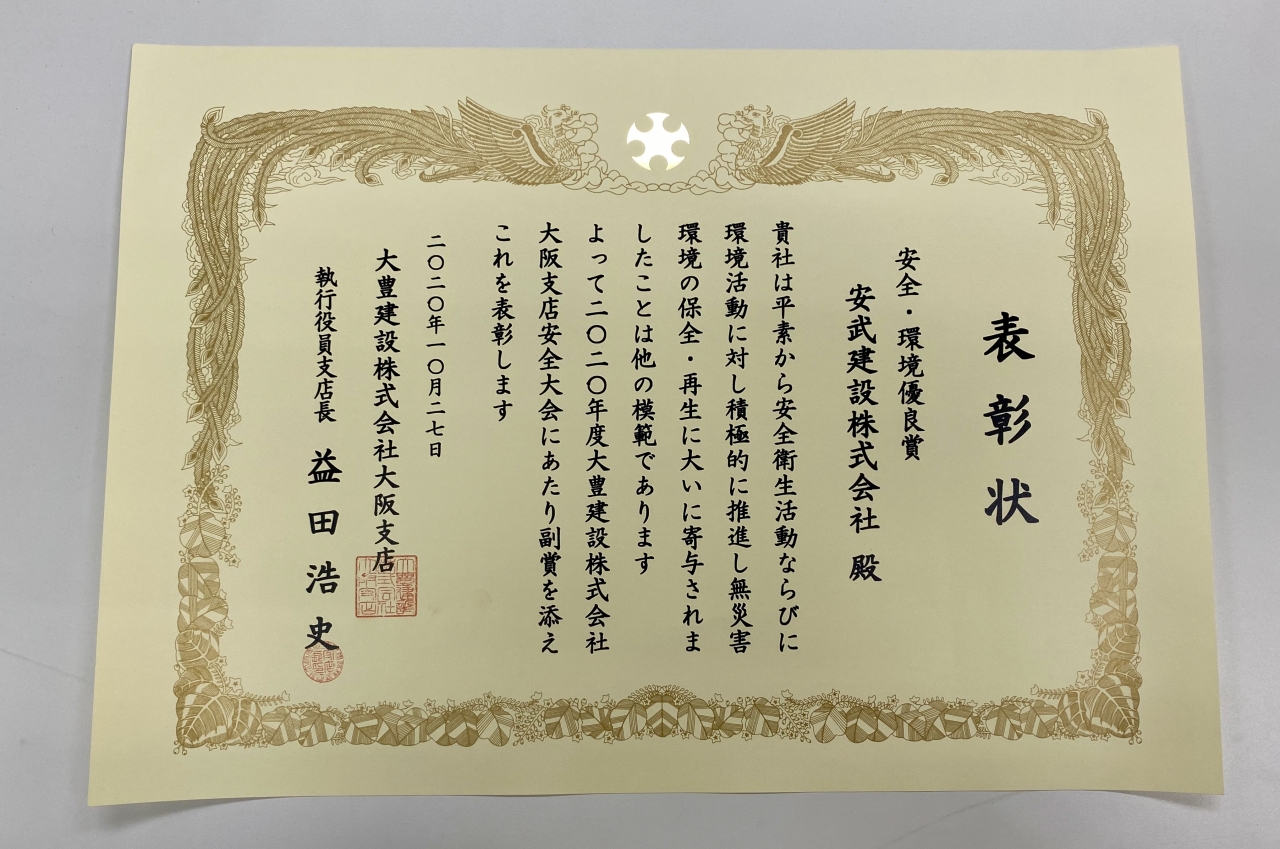 表彰状
安全・環境優良賞
安武建設株式会社 殿
貴社は平素から安全衛生活動ならびに
環境活動に対し積極的に推進し無災害
環境の保全・再生に大いに寄与されま
したことは他の模範であります
よって二〇二〇年度大豊建設株式会社
大阪支店安全大会にあたり副賞を添え
これを表彰します
二〇二〇年一〇月二七日
大豊建設株式会社大阪支店
執行役員支店長 益田浩史